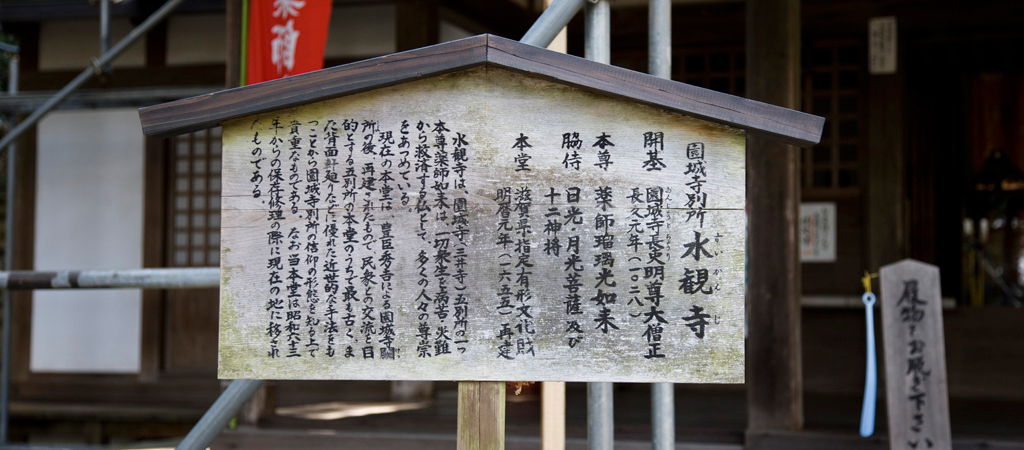 園城寺別所 水観寺
すいかんじ
開基 園城寺長吏明尊大僧正
長久元年(一〇四〇)
本尊 薬師瑠璃光如来
脇侍 日光・月光菩薩 及び
十二神将
本堂 滋賀県指定有形文化財
明暦元年(一六五五)再建
水観寺は、園城寺(三井寺)五別所の一つ
本尊薬師如来は、一切衆生を病苦・災難
から救済する仏として、多くの人々の尊崇
をあつめている。
現在の本堂は、豊臣秀吉による園城寺闕
所の後、再建されたもので、民衆との交流を目
的とする五別所の本堂のうちでも最も古く、ま
た背面
優れた近世的な手法をも
つことから園城寺別所の信仰の形態を知る上で
貴重なものである。なお当本堂は昭和六三
年からの保存修理の際に現在の地に移され
ものである。
履物をお脱ぎ下さい
薬師